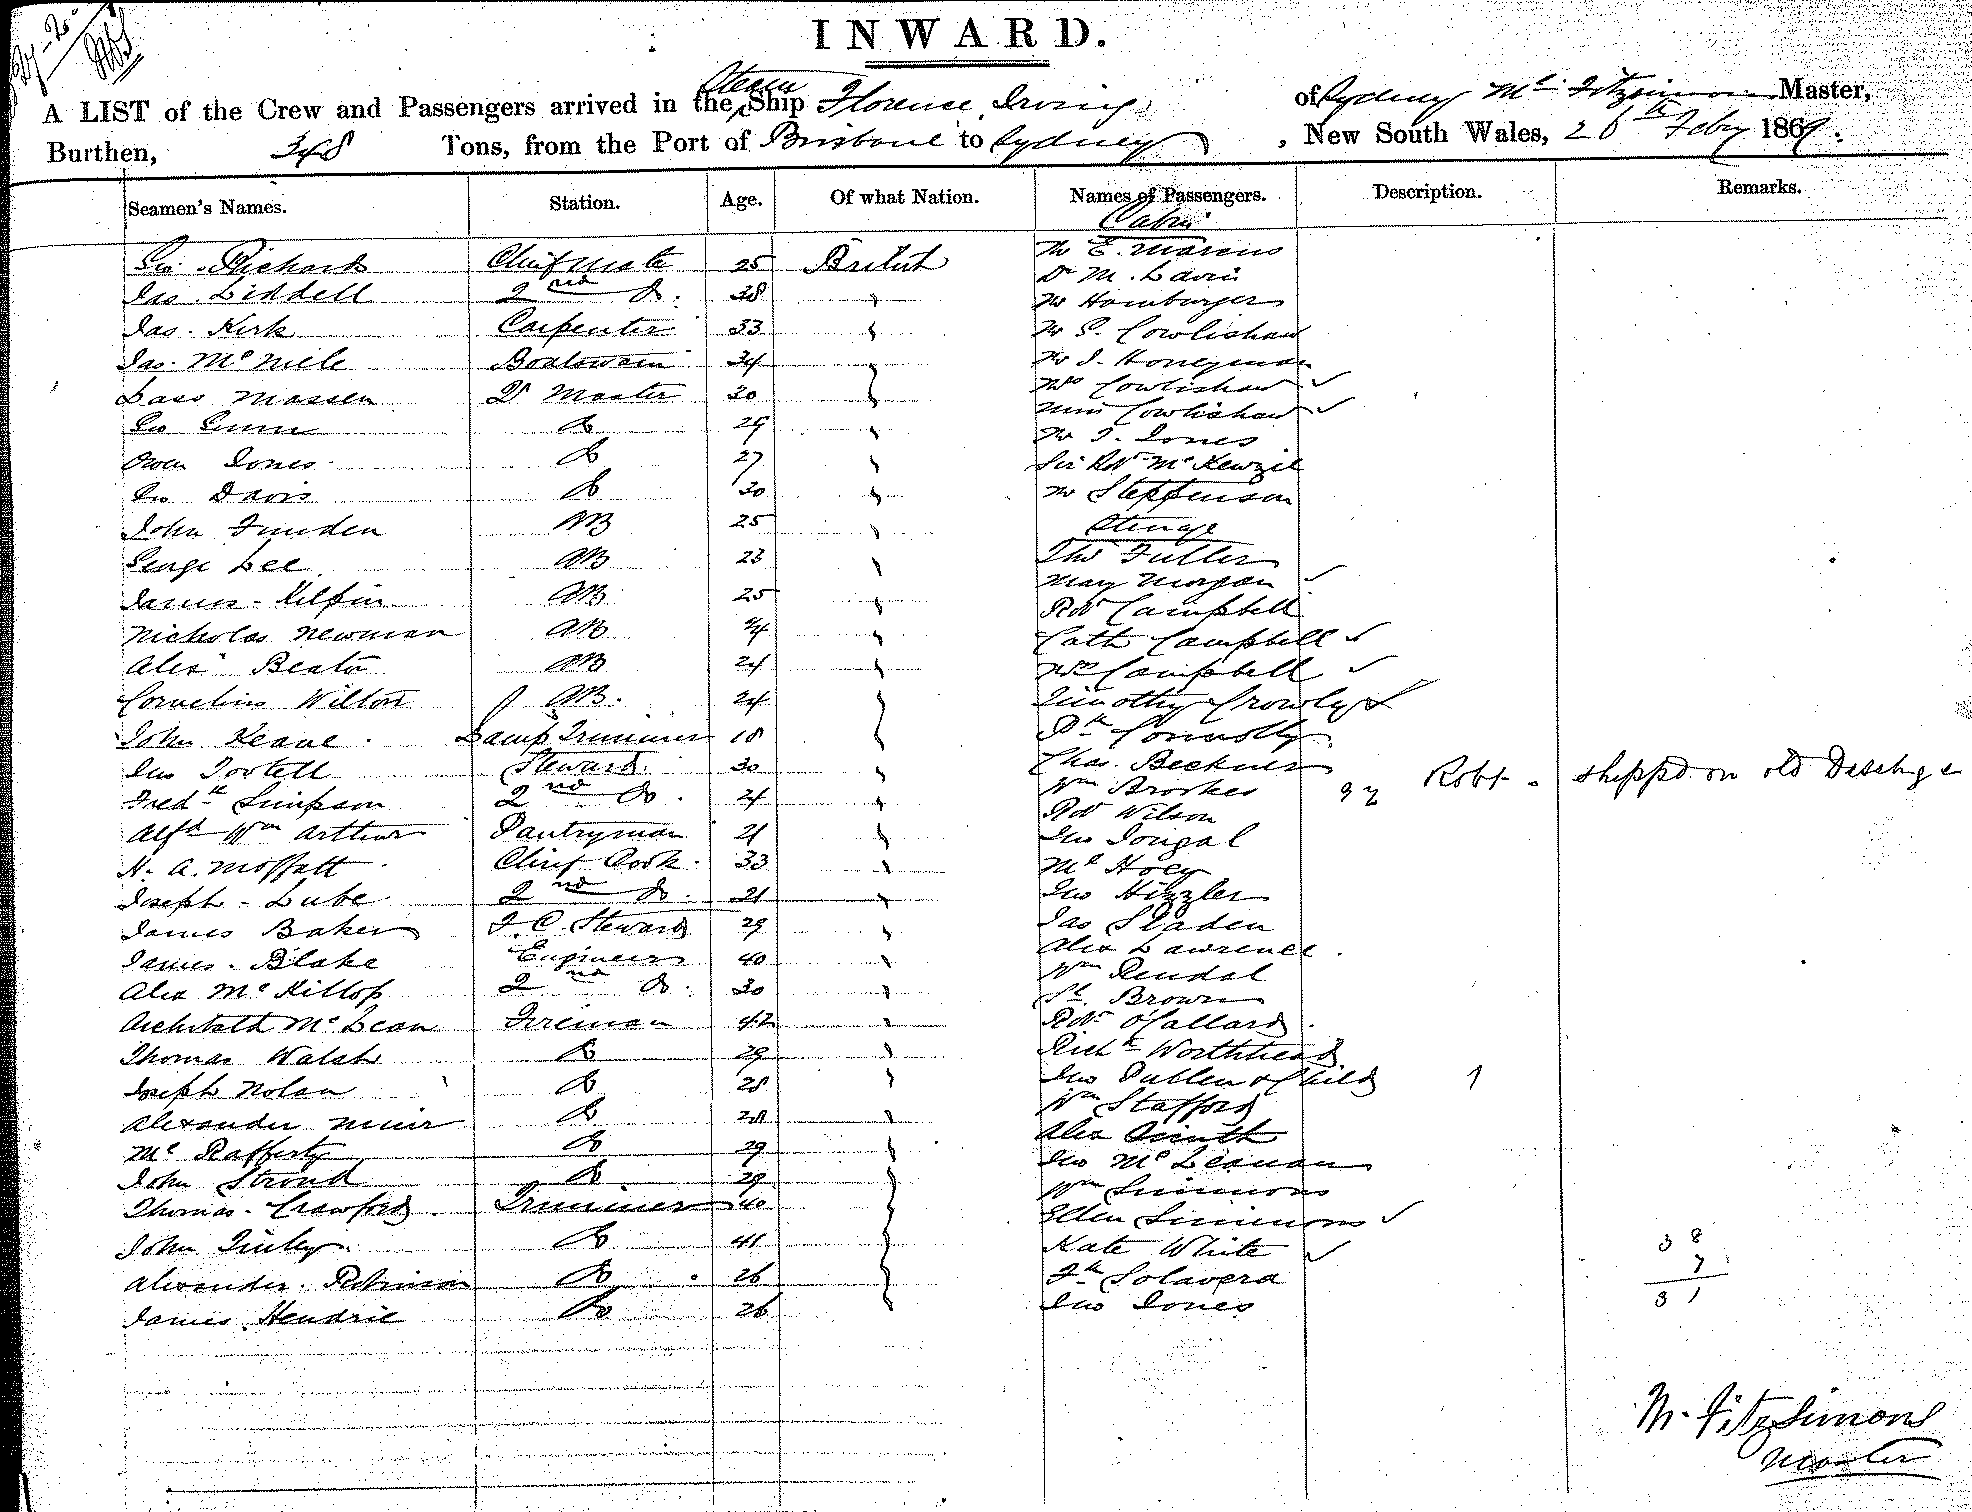 INWARD.
A LIST of the Crew and Passengers arrived in the Steam Ship Florence Irving of Sydney Master,
Burthen, 348 Tons, from the Port of Brisbane to Sydney , New South Wales, 26th Feby 1869.
Seamen's Names. Station. Age. Of what Nation. Names of Passengers. Description. Remarks.
Cabin
Geo. Richard Chief Mate 25 British Mr E. Marcus
Dr M.
Jas. Liddell 2nd Do. 28 " Mr Homburger
Jas. Kirk Carpenter 33 " Mr S. Cowlishaw
Jas. McNiele Boatswain 34 " Mr J. Honeyman
Massen Qr Master 30 " Mrs Cowlishaw
Geo Gunn Do 29 " Miss Cowlishaw
Mr T. Jones
Owen Jones Do 27 " Sir Rt McKenzie
Geo Davis Do 30 " Mr Steffenson
John AB 25 " Steerage
George Lee AB 23 " Thos Fuller
Mary Morgan
James AB 25 " Robt Campbell
Nicholas Newman AB " Cath Campbell
Alex Beaton AB 24 " Campbell
Cornelius Wilton AB. 24 " Timothy Crowley
John Keane Lamp Trimmer 18 " Connolly
Jno Tortell Steward 30 " Chas.
Fredk Simpson 2nd Do. 24 " Wm Brookes 37 Robt - shippd on old
Robt Wilson
Alfd Wm Arthur Pantryman 21 " Jno Dougal
H. A. Moffatt Chief Cook. 33 "
Joseph Lube 2nd Do. 21 " Jno Hizzler
James Baker F. C. Steward 29 " Jas Sladen
James Blake Engineer 40 " Alex Lawrence
Wm Rendal
Alex McKillop 2nd Do. 30 " Brown
Archibald McLean Fireman 42 " Robt
Thomas Walsh Do 29 " Richd Worthhead
Joseph Nolan Do 28 " Jno & Child 1
Wm Stafford
Alexander Muir Do 28 " Alex Smith
Mc Rafferty Do 29 " Jno McLennan
John Stroud Do 29 " Wm Simmons
Thomas Crawford Trimmer 40 " Ellen Simmons
John Do 41 " Kate White 38
7
Alexander Robinson Do 26 " 31
James Hendrie Do 26 " Jno Jones
M. FitzSimons
Master